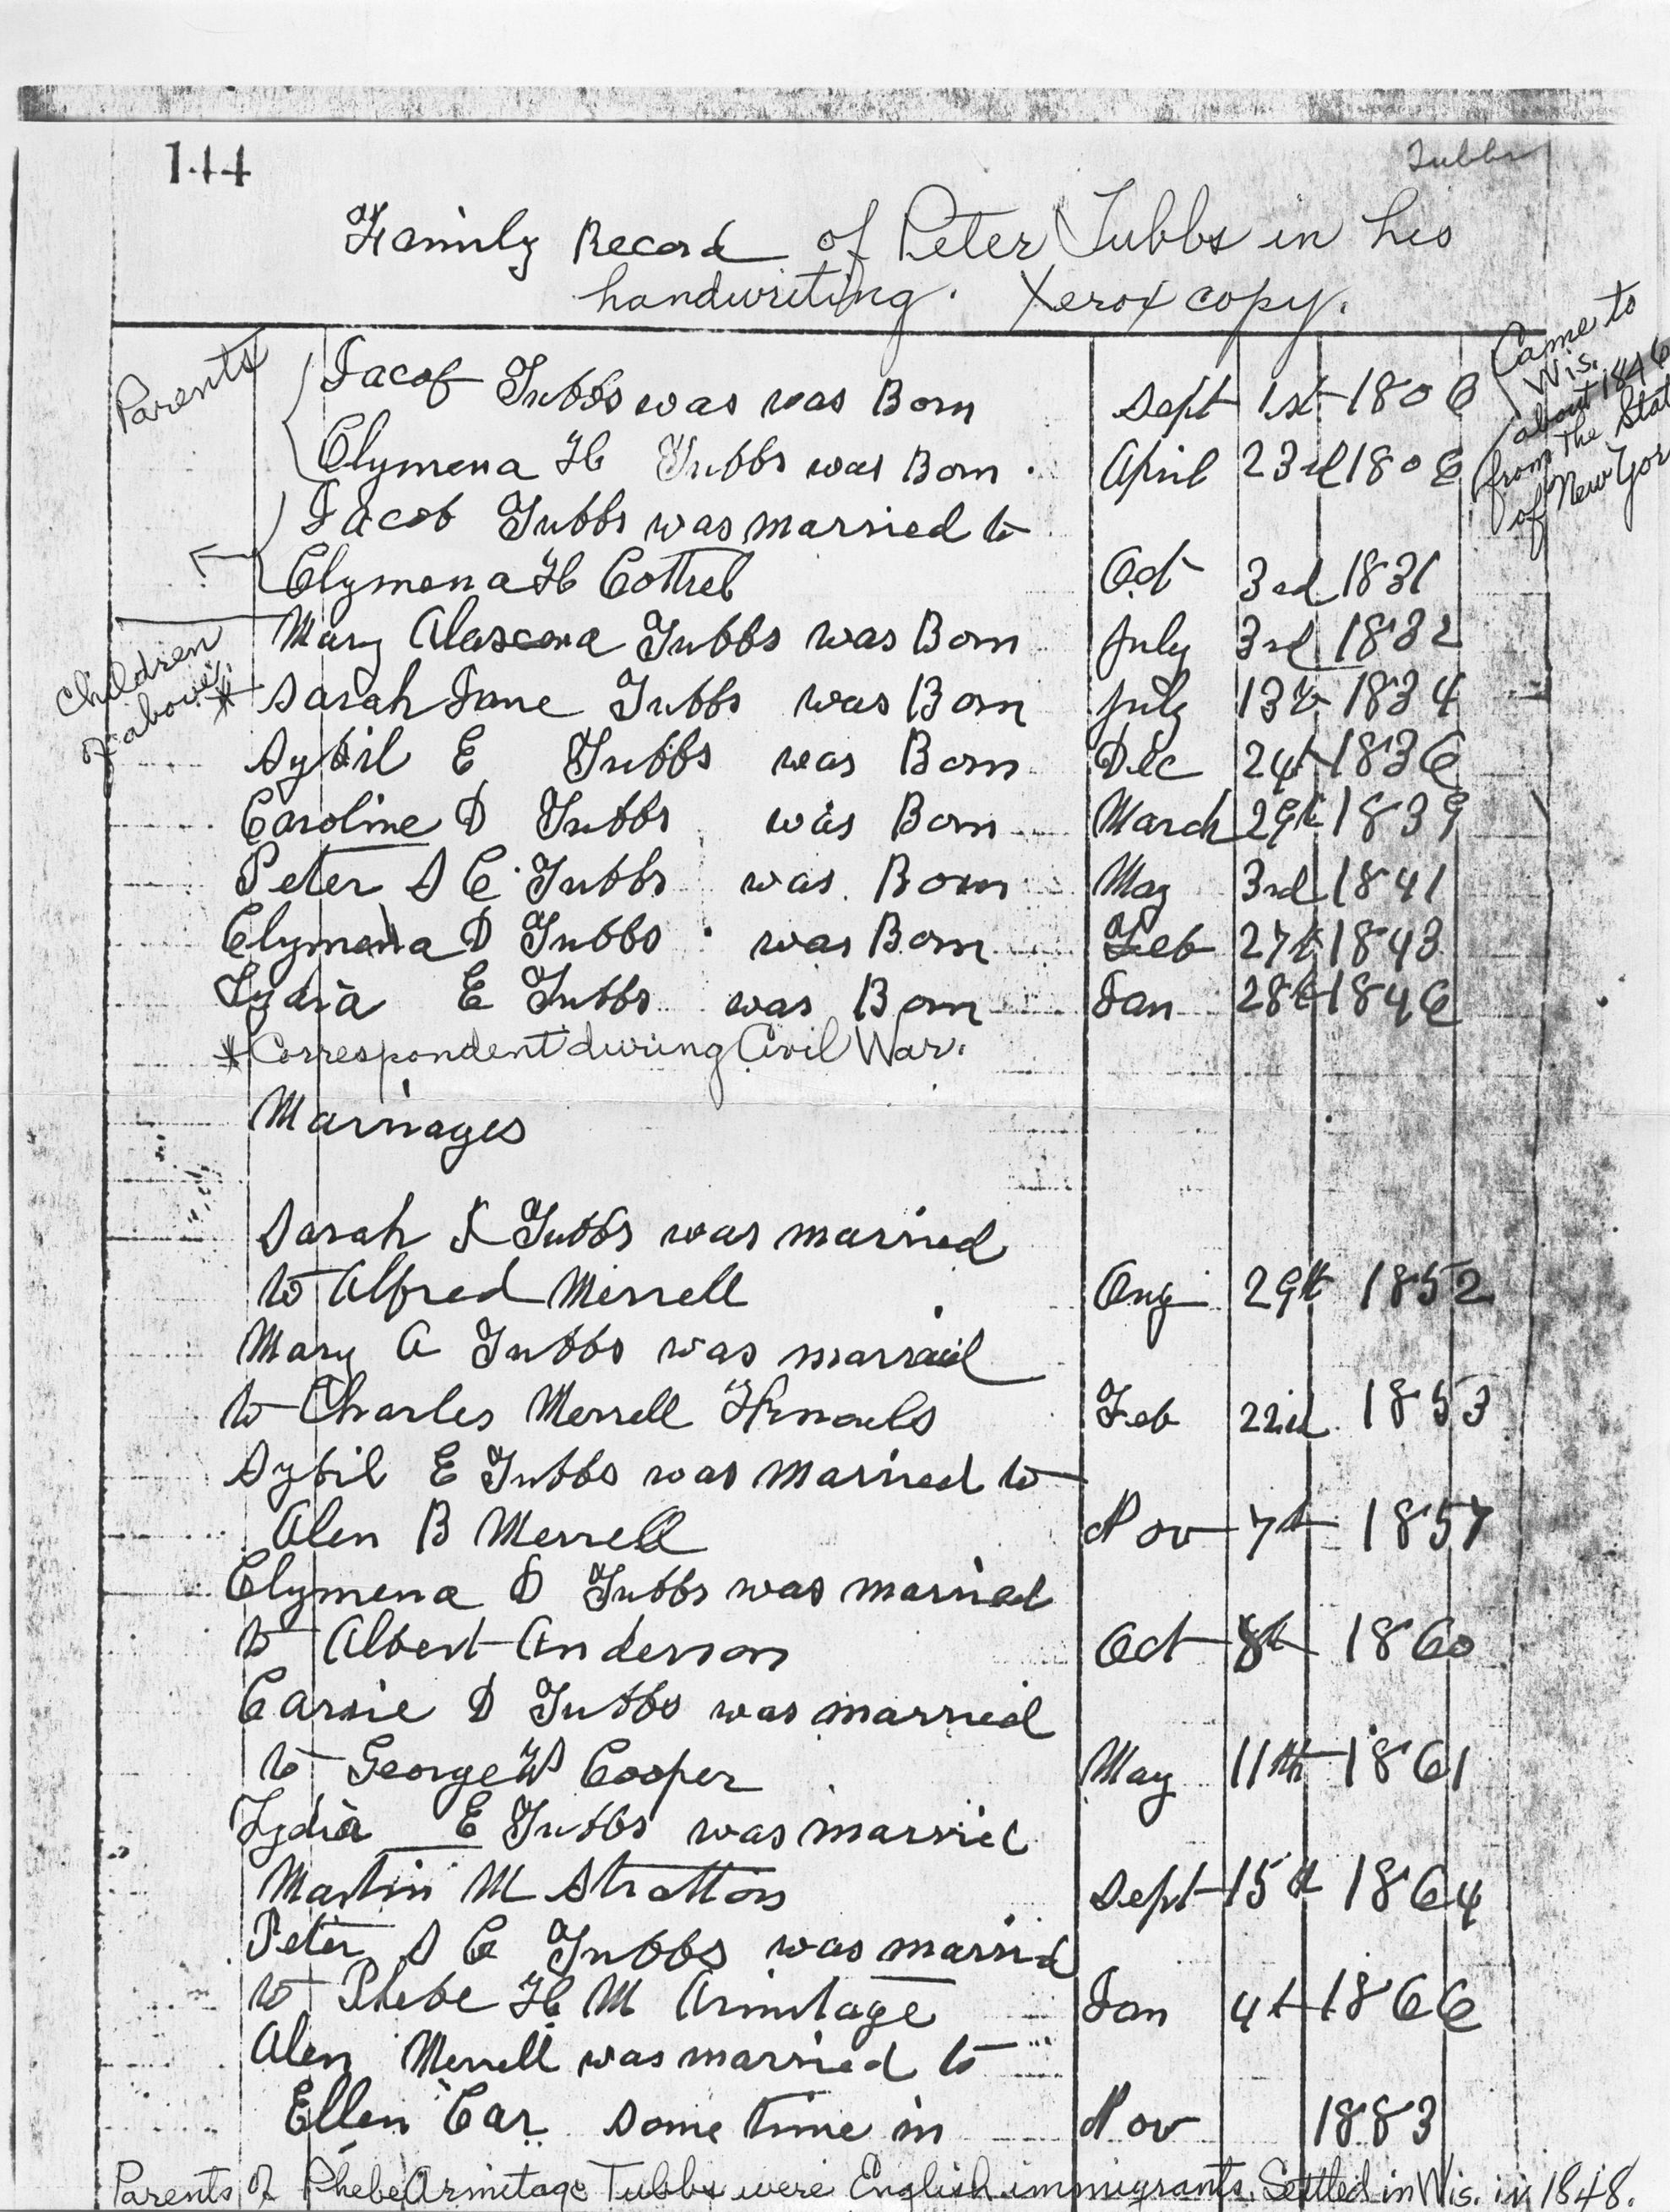 144
Tubbs
Family Record of Peter Tubbs in his
handwriting. Xerox copy.
Parents
Came to
Wis.
about 1846
from the Stat
of New Yor
Jacob Tubbs was was Born Sept 1st 1806
Clymena H Tubbs was Born. April 23rd 1806
Jacob Tubbs was married to
Clymena H Cottrel Oct 3rd 1831
Children
of above:
Mary Alascena Tubbs was Born July 3rd 1832
* Sarah Jane Tubbs was Born July 13th 1834
Sybil E Tubbs was Born Dec 24th 1836
Caroline D Tubbs was Born March 29th 1839
Peter S C Tubbs was Born May 3rd 1841
Clymena D Tubbs was Born Feb 27th 1843
Lydia E Tubbs was Born Jan 28th 1846
* Correspondent during Civil War.
Marriages
Sarah J Tubbs was married
to Alfred Merrell Aug 29th 1852
Mary A Tubbs was married
to Charles Merrell Feb 22nd 1853
Sybil E Tubbs was married to
Alen B Merrell Nov 7th 1857
Clymena D Tubbs was married
to Albert Anderson Oct 8th 1860
Carrie D Tubbs was married
to George W Cooper May 11th 1861
Lydia E Tubbs was married
Martin M Stratton Sept 15th 1864
Peter S C Tubbs was married
to Phebe H M Armitage Jan 4th 1866
Alen Merrell was married to
Ellen Car some time in Nov 1883
Parents of Phebe Armitage Tubbs were English immigrants. Settled in Wis. in 1848.